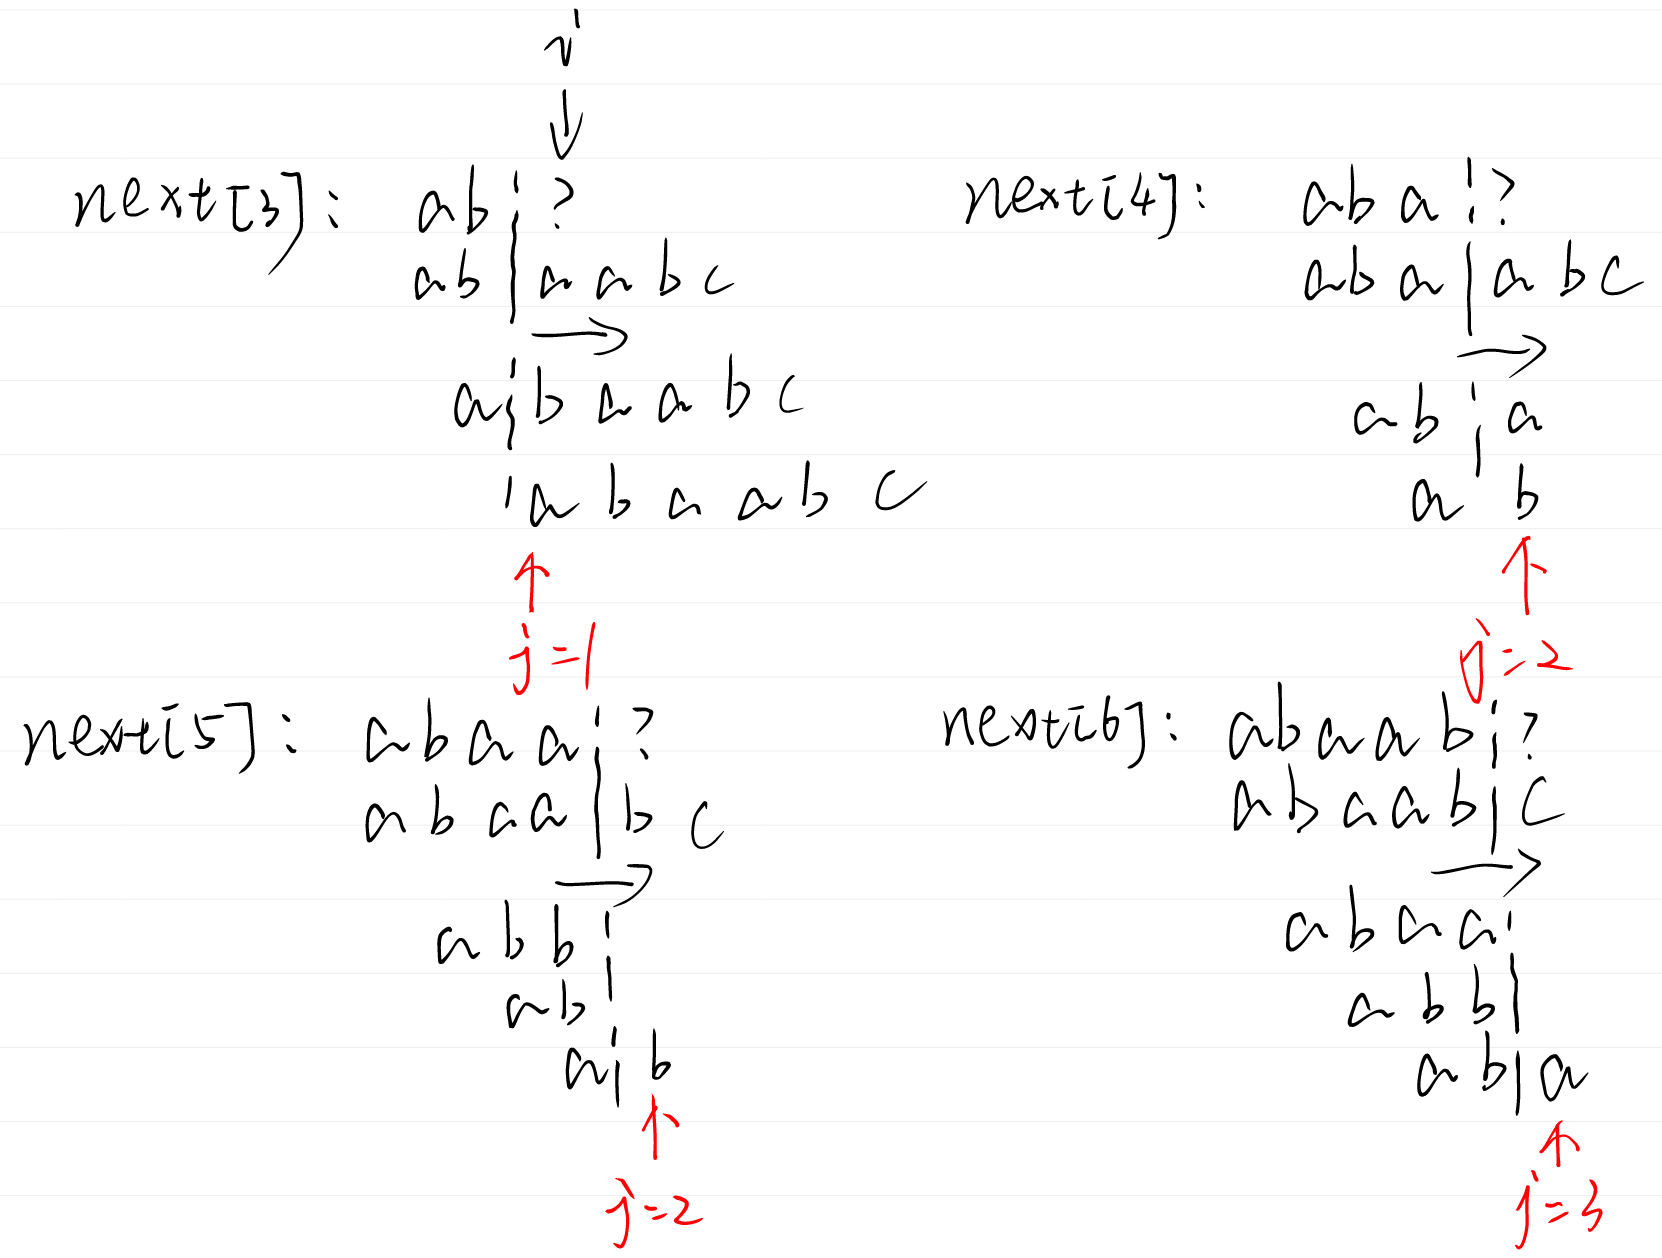 i
next[3]: ab ?
ab a a b c
a b a a b c
a b a a b c
j=1
next[4]: ab a ?
ab a a b c
a b a
a b
j=2
next[5]: a b a a ?
a b a a b c
a b b
a b
a b
j=2
next[6]: a b a a b ?
a b a a b c
a b a a
a b b
a b a
j=3